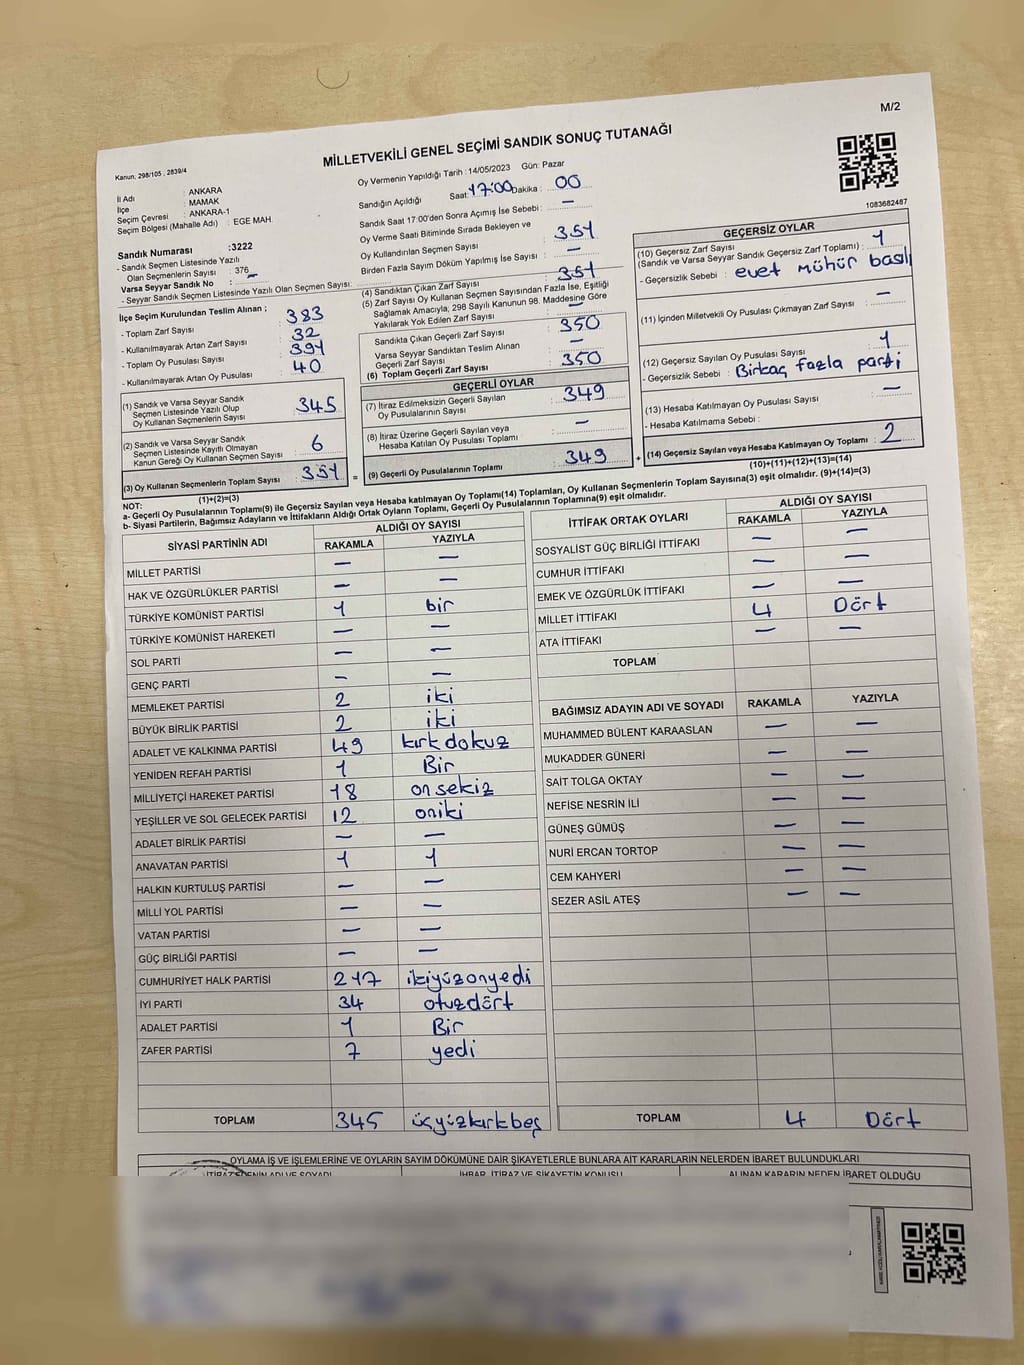 M/2
MİLLETVEKİLİ GENEL SEÇİMİ SANDIK SONUÇ TUTANAĞI
Kanun, 298/105 , 2839/4
İl Adı : ANKARA
İlçe : MAMAK
Seçim Çevresi : ANKARA-1
Seçim Bölgesi (Mahalle Adı) : EGE MAH.
Sandık Numarası :3222
- Sandık Seçmen Listesinde Yazılı
Olan Seçmenlerin Sayısı : 376
Varsa Seyyar Sandık No : –
- Seyyar Sandık Seçmen Listesinde Yazılı Olan Seçmen Sayısı:
İlçe Seçim Kurulundan Teslim Alınan ;
- Toplam Zarf Sayısı : 383
- Kullanılmayarak Artan Zarf Sayısı : 32
- Toplam Oy Pusulası Sayısı : 391
- Kullanılmayarak Artan Oy Pusulası : 40
(1) Sandık ve Varsa Seyyar Sandık
Seçmen Listesinde Yazılı Olup
Oy Kullanan Seçmenlerin Sayısı : 345
(2) Sandık ve Varsa Seyyar Sandık
Seçmen Listesinde Kayıtlı Olmayan
Kanun Gereği Oy Kullanan Seçmen Sayısı : 6
(3) Oy Kullanan Seçmenlerin Toplam Sayısı : 351
(1)+(2)=(3)
Oy Vermenin Yapıldığı Tarih : 14/05/2023 Gün: Pazar
Sandığın Açıldığı Saat: 17:00 Dakika : 00
Sandık Saat 17:00'den Sonra Açılmış İse Sebebi : –
Oy Verme Saati Bitiminde Sırada Bekleyen ve
Oy Kullandırılan Seçmen Sayısı : 351
Birden Fazla Sayım Döküm Yapılmış İse Sayısı : –
(4) Sandıktan Çıkan Zarf Sayısı : 351
(5) Zarf Sayısı Oy Kullanan Seçmen Sayısından Fazla İse, Eşitliği
Sağlamak Amacıyla; 298 Sayılı Kanunun 98. Maddesine Göre
Yakılarak Yok Edilen Zarf Sayısı : –
Sandıkta Çıkan Geçerli Zarf Sayısı : 350
Varsa Seyyar Sandıktan Teslim Alınan
Geçerli Zarf Sayısı : –
(6) Toplam Geçerli Zarf Sayısı : 350
GEÇERLİ OYLAR
(7) İtiraz Edilmeksizin Geçerli Sayılan
Oy Pusulalarının Sayısı : 349
(8) İtiraz Üzerine Geçerli Sayılan veya
Hesaba Katılan Oy Pusulası Toplamı : –
(9) Geçerli Oy Pusulalarının Toplamı : 349
1083682487
GEÇERSİZ OYLAR
(10) Geçersiz Zarf Sayısı
(Sandık ve Varsa Seyyar Sandık Geçersiz Zarf Toplamı) : 1
- Geçersizlik Sebebi : evet mühür basılı
(11) İçinden Milletvekili Oy Pusulası Çıkmayan Zarf Sayısı : –
(12) Geçersiz Sayılan Oy Pusulası Sayısı : 1
- Geçersizlik Sebebi : Birkaç fazla parti
(13) Hesaba Katılmayan Oy Pusulası Sayısı : –
- Hesaba Katılmama Sebebi :
(14) Geçersiz Sayılan veya Hesaba Katılmayan Oy Toplamı : 2
(10)+(11)+(12)+(13)=(14)
NOT:
a- Geçerli Oy Pusulalarının Toplamı(9) ile Geçersiz Sayılan veya Hesaba katılmayan Oy Toplamı(14) Toplamları, Oy Kullanan Seçmenlerin Toplam Sayısına(3) eşit olmalıdır. (9)+(14)=(3)
b- Siyasi Partilerin, Bağımsız Adayların ve İttifakların Aldığı Ortak Oyların Toplamı, Geçerli Oy Pusulalarının Toplamına(9) eşit olmalıdır.
SİYASİ PARTİNİN ADI ALDIĞI OY SAYISI
RAKAMLA YAZIYLA
MİLLET PARTİSİ – –
HAK VE ÖZGÜRLÜKLER PARTİSİ – –
TÜRKİYE KOMÜNİST PARTİSİ 1 bir
TÜRKİYE KOMÜNİST HAREKETİ – –
SOL PARTİ – –
GENÇ PARTİ – –
MEMLEKET PARTİSİ 2 iki
BÜYÜK BİRLİK PARTİSİ 2 iki
ADALET VE KALKINMA PARTİSİ 49 kırkdokuz
YENİDEN REFAH PARTİSİ 1 Bir
MİLLİYETÇİ HAREKET PARTİSİ 18 onsekiz
YEŞİLLER VE SOL GELECEK PARTİSİ 12 oniki
ADALET BİRLİK PARTİSİ – –
ANAVATAN PARTİSİ 1 1
HALKIN KURTULUŞ PARTİSİ – –
MİLLİ YOL PARTİSİ – –
VATAN PARTİSİ – –
GÜÇ BİRLİĞİ PARTİSİ – –
CUMHURİYET HALK PARTİSİ 217 ikiyüzonyedi
İYİ PARTİ 34 otuzdört
ADALET PARTİSİ 1 Bir
ZAFER PARTİSİ 7 yedi
TOPLAM 345 üçyüzkırkbeş
İTTİFAK ORTAK OYLARI ALDIĞI OY SAYISI
RAKAMLA YAZIYLA
SOSYALİST GÜÇ BİRLİĞİ İTTİFAKI – –
CUMHUR İTTİFAKI – –
EMEK VE ÖZGÜRLÜK İTTİFAKI – –
MİLLET İTTİFAKI 4 Dört
ATA İTTİFAKI – –
TOPLAM
BAĞIMSIZ ADAYIN ADI VE SOYADI RAKAMLA YAZIYLA
MUHAMMED BÜLENT KARAASLAN – –
MUKADDER GÜNERİ – –
SAİT TOLGA OKTAY – –
NEFİSE NESRİN İLİ – –
GÜNEŞ GÜMÜŞ – –
NURİ ERCAN TORTOP – –
CEM KAHYERİ – –
SEZER ASİL ATEŞ – –
TOPLAM 4 Dört
OYLAMA İŞ VE İŞLEMLERİNE VE OYLARIN SAYIM DÖKÜMÜNE DAİR ŞİKAYETLERLE BUNLARA AİT KARARLARIN NELERDEN İBARET BULUNDUKLARI
İTİRAZ EDENİN ADI VE SOYADI İHBAR, İTİRAZ VE ŞİKAYETİN KONUSU ALINAN KARARIN NEDEN İBARET OLDUĞU